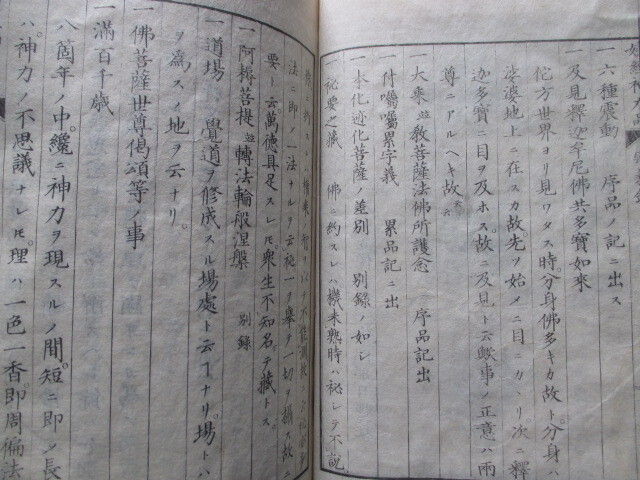 一 六種震動 序品ノ記ニ出ス
一 及見釋迦牟尼佛共多寶如來
佗方世界ヨリ見ワタス時分身佛多キカ故ト分身ハ
娑婆地上ニ在スカ故先ツ始メニ目ニカヽリ次ニ釋
迦多寶ニ目ヲ及ホス故ニ及見ト云歟事ノ正意ハ兩
尊ニアルヘキ故
一 大乘 教菩薩法佛所護念 序品記出
一 付囑囑累字義 累品記ニ出
一 本化迹化菩薩ノ差別 別錄 如シ
一 祕要之藏 佛ニ約スレハ機未熟時ハ祕シテ不說
法ニ即ノ一法ナルヲ云祕一ヲ舉テ一切ヲ攝ス故ニ
要ト云萬德具足スレモ衆生不知名テ藏トス
一 阿耨菩提 轉法輪般涅槃 別錄
一 道場ハ覺道ヲ修成スル場處ト云ヿナリ場トハ
ヲ為スノ地ヲ云ナリ
一 佛菩薩世尊偈頌等ノ事
一 滿百千歲
八箇年ノ中纔ニ神力ヲ現スルノ間短ニ即ノ長
ハ神力ノ不思議ナレモ理ハ一色一香即周徧法